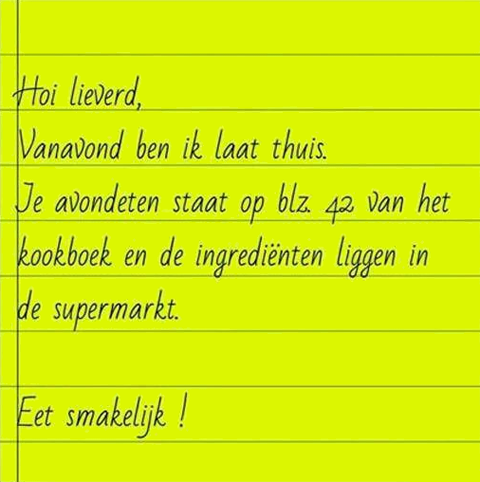 Hoi lieverd,
Vanavond ben ik laat thuis.
Je avondeten staat op blz. 42 van het
kookboek en de ingrediënten liggen in
de supermarkt.
Eet smakelijk !